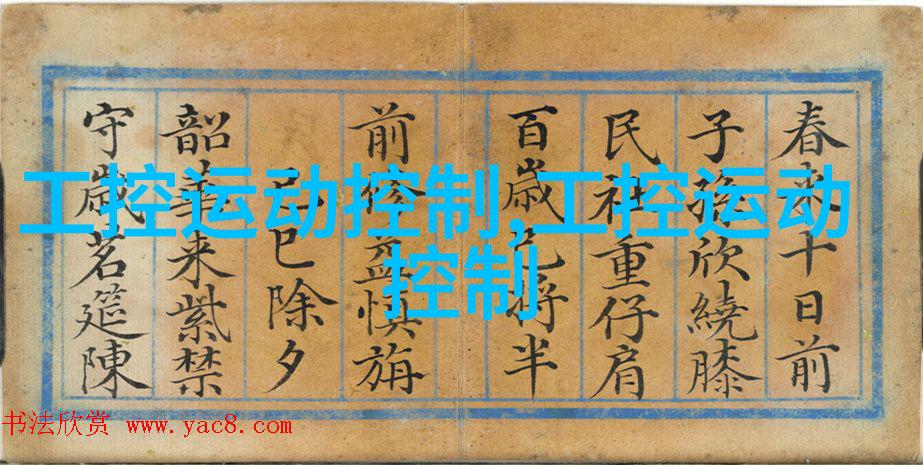 春来十日前
子孫欣繞膝
民社重仔肩
百歲已将半
前修益慎旃
己巳除夕
韶華来紫禁
守歲茗筵陳
工控运动控制,工控运动
控制
书法欣赏 www.yac8.com